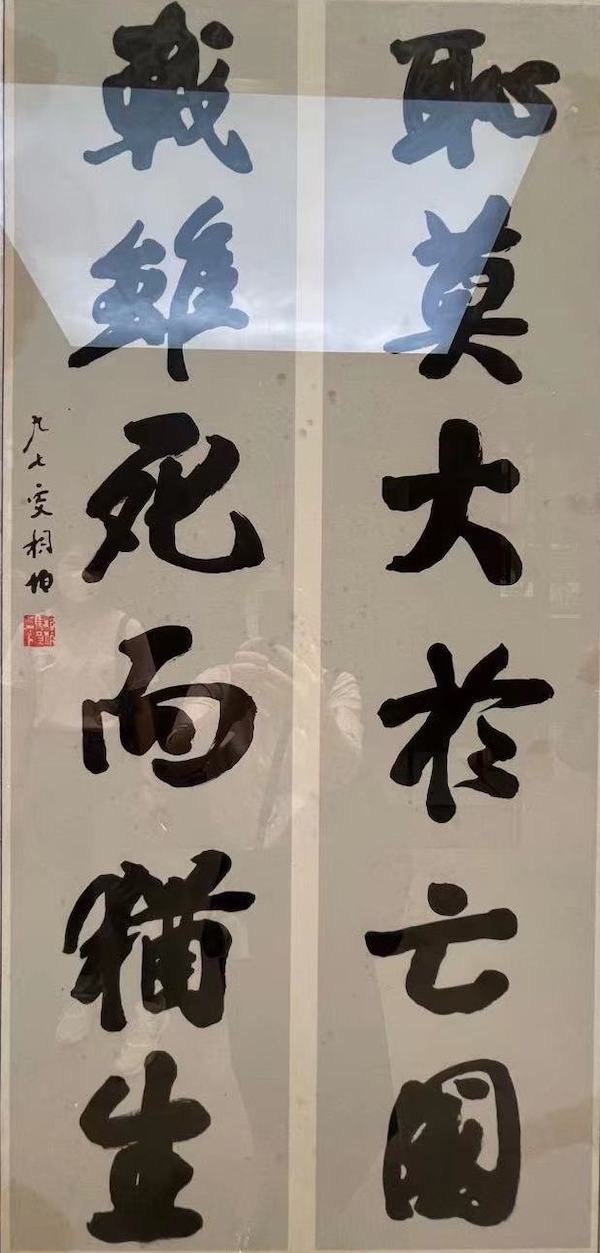 恥莫大於亡國
戰雖死而猶生
九七叟相伯